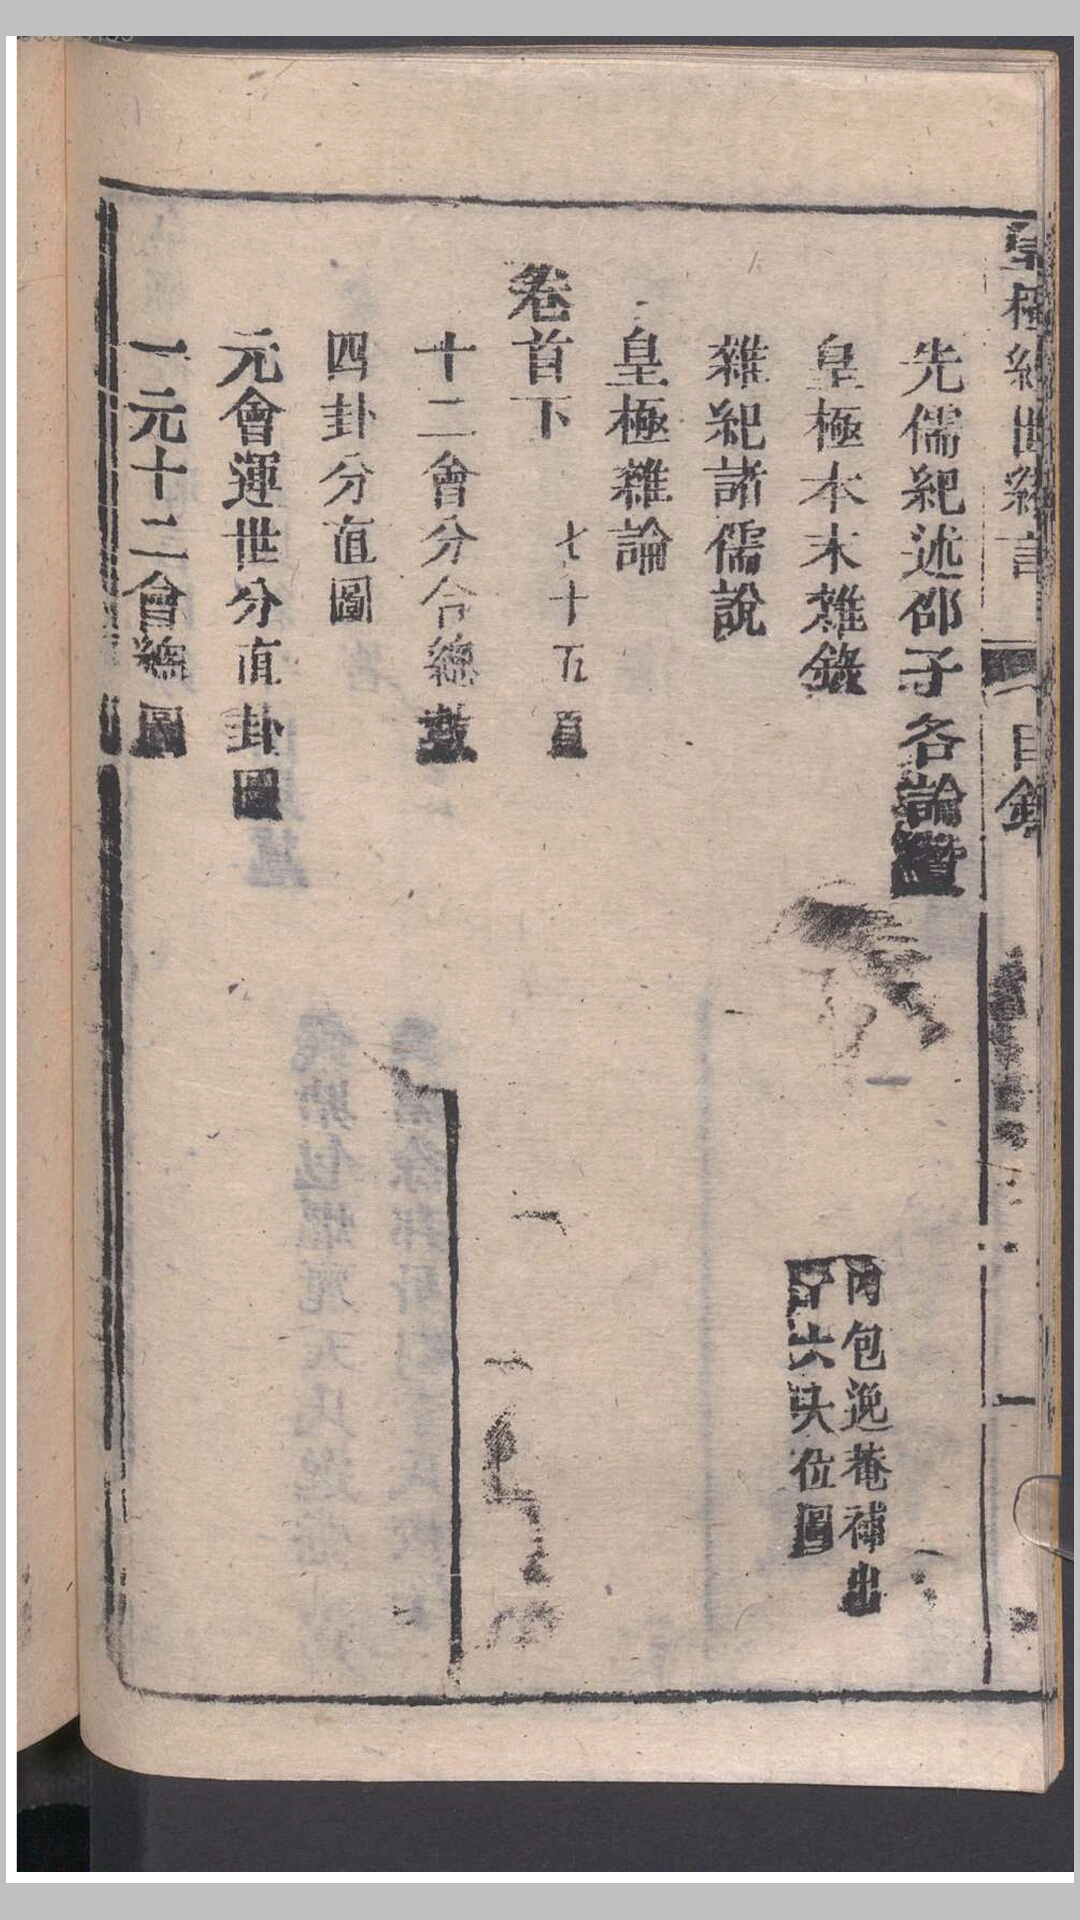 皇極經世緒言
目錄
先儒紀述邵子各論贊
皇極本末雜錄
內包逸菴補出
六失位圖
雜紀諸儒說
皇極雜論
卷首下 七十五頁
十二會分合總數
四卦分直圖
元會運世分直卦圖
一元十二會總圖